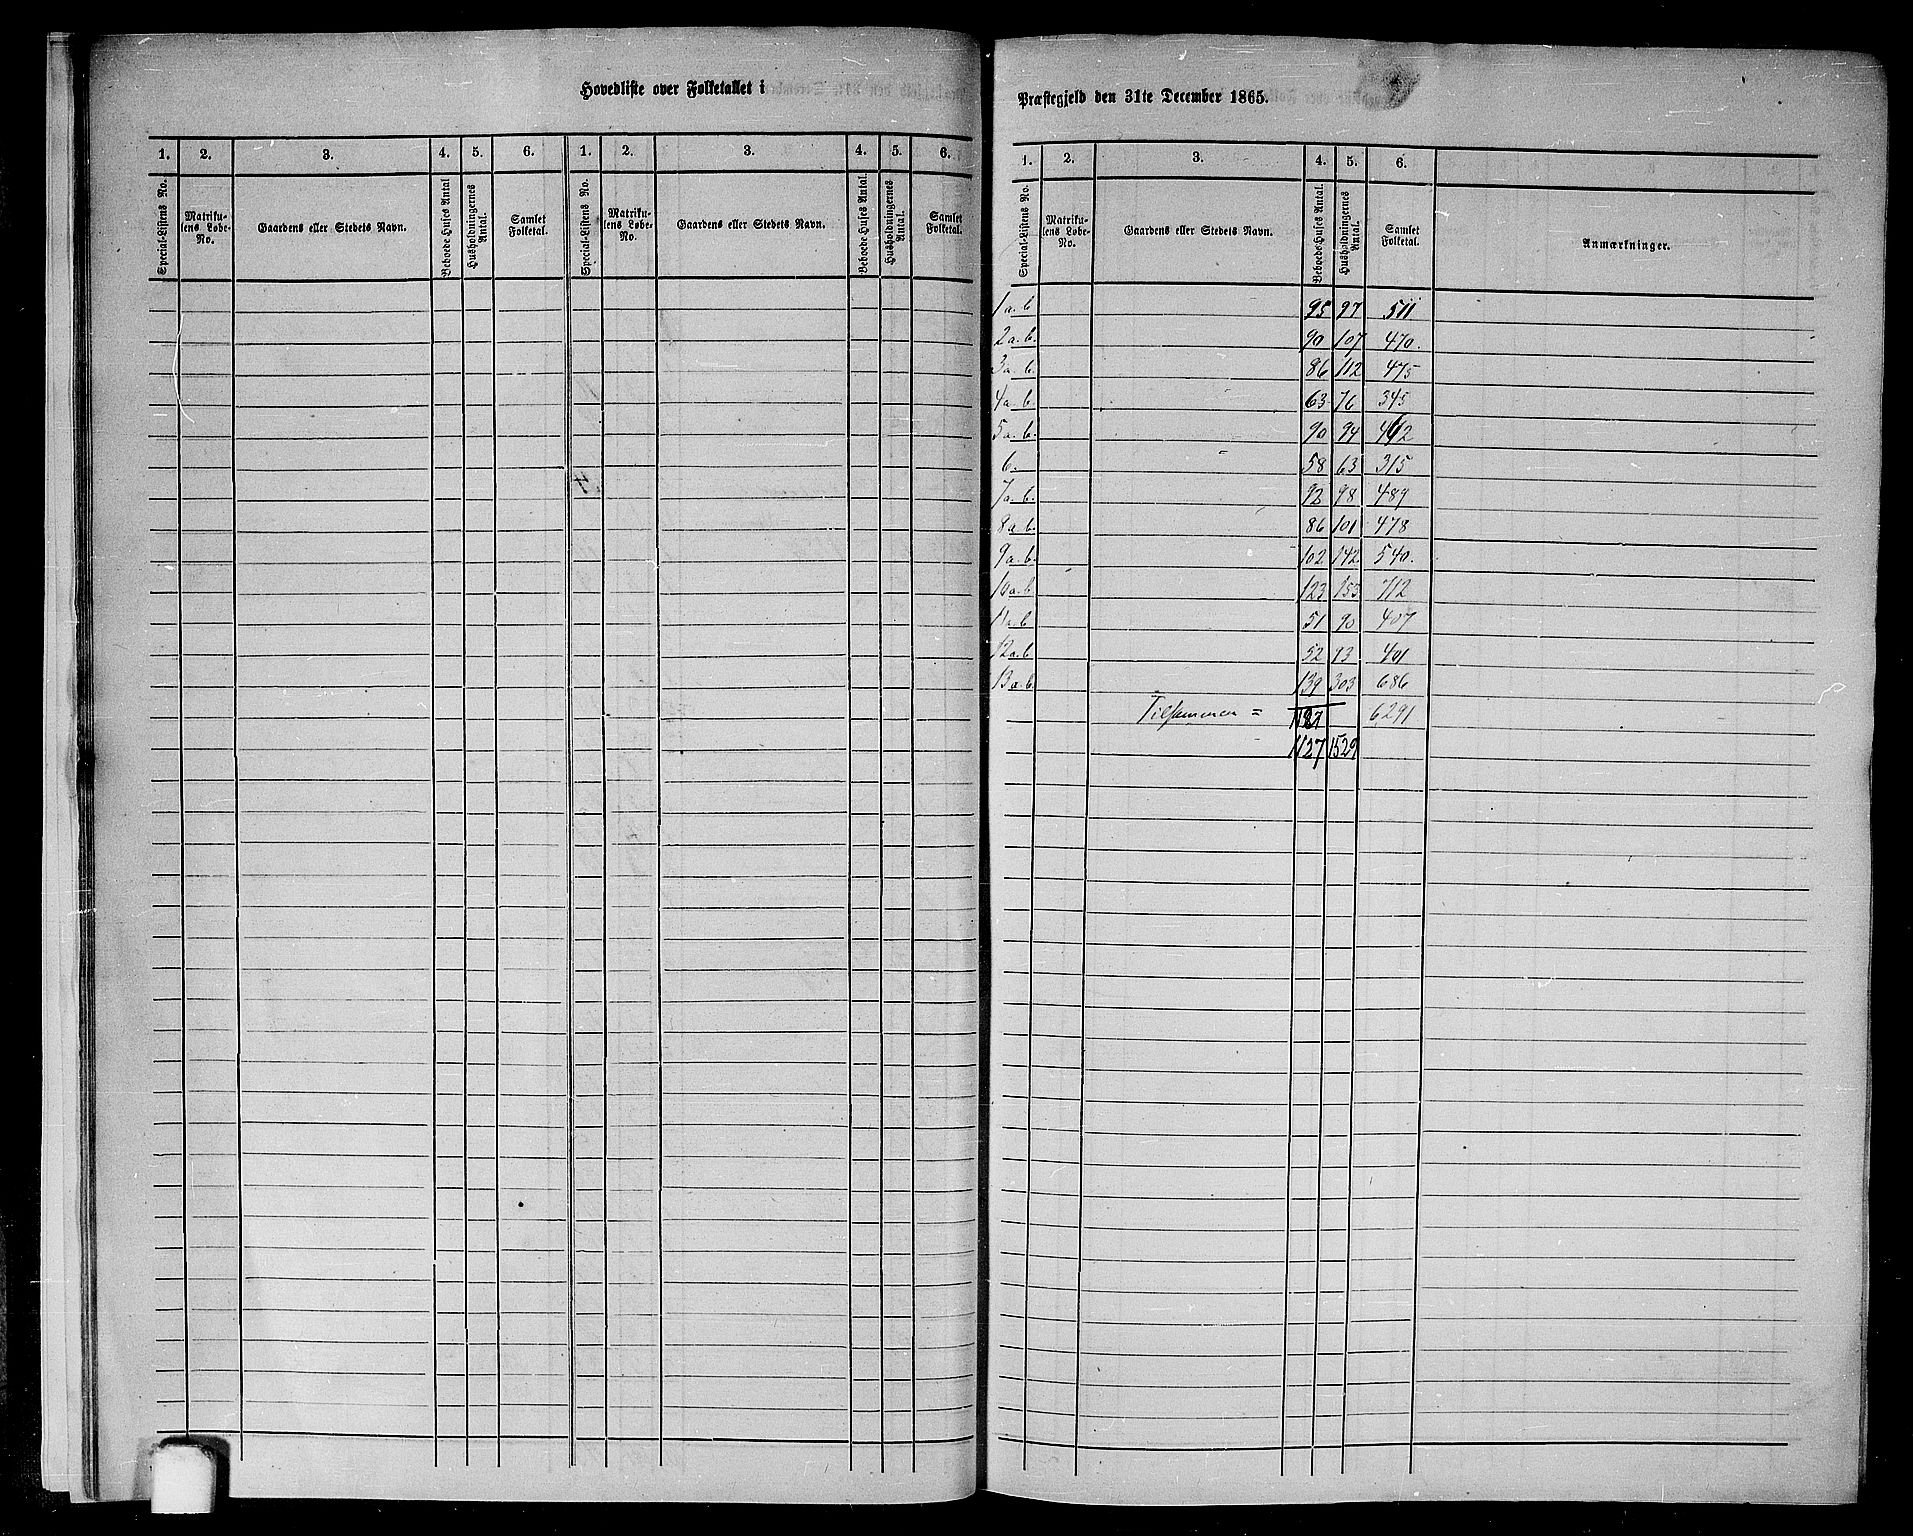 Hovedliste over Folketallet i
1. 2. 3. 4. 5. 6. 1. 2. 3. 4. 5. 6.
Special-Listens No. Matrikulens Løbe-No. Gaardens eller Stedets Navn. Beboede Huses Antal Husholdningernes Antal. Samlet Folketal. Special-Listens No. Matrikulens Løbe-No. Gaardens eller Stedets Navn. Beboede Huses Antal. Husholdningernes Antal. Samlet Folketal.
Præstegjeld den 31te December 1865.
1. 2. 3. 4. 5. 6.
Special-Listens No. Matrikulens Løbe-No. Gaardens eller Stedets Navn. Beboede Huses Antal. Husholdningernes Antal. Samlet Folketal. Anmærkninger.
1 a.b 95 97 511
2 a.b. 90 107 470.
3 a.b. 86 112 475
4 a.b. 63 76 345
5 a.b. 90 94 462
6. 58 63 315
7 a.b. 92 98 489
8 a.b. 86 101 478
9 a.b. 102 142 540.
10 a.b 123 153 712
11 a.b 51 90 407
12 a.b 52 93 401
13 a.b. 139 303 686
Tilsammen = 6291
1127 1529